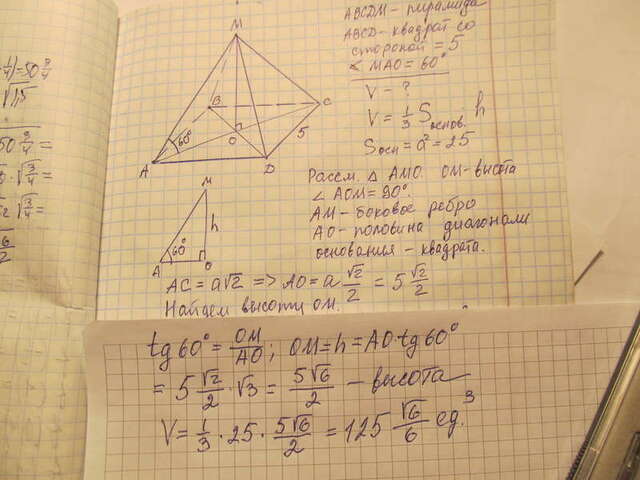 ABCDM - пирамида
ABCD - квадрат со
стороной = 5
∠ MAO = 60°
V = ?
V = 1/3 Sоснов. h
Sосн = a² = 25
M
B
C
60°
O
5
A
D
Рассм. △ AMO. OM - высота
∠ AOM = 90°.
AM - боковое ребро
AO - половина диагонали
основания - квадрата.
M
h
60°
A
O
AC = a√2 => AO = a √2/2 = 5 √2/2
Найдем высоту OM.
tg 60° = OM/AO; OM = h = AO·tg 60°
= 5 √2/2 · √3 = 5√6/2 - высота
V = 1/3 · 25 · 5√6/2 = 125 √6/6 ед.³
)=50 3/4
50 3/4 =
√3/4 =
√3/4 =